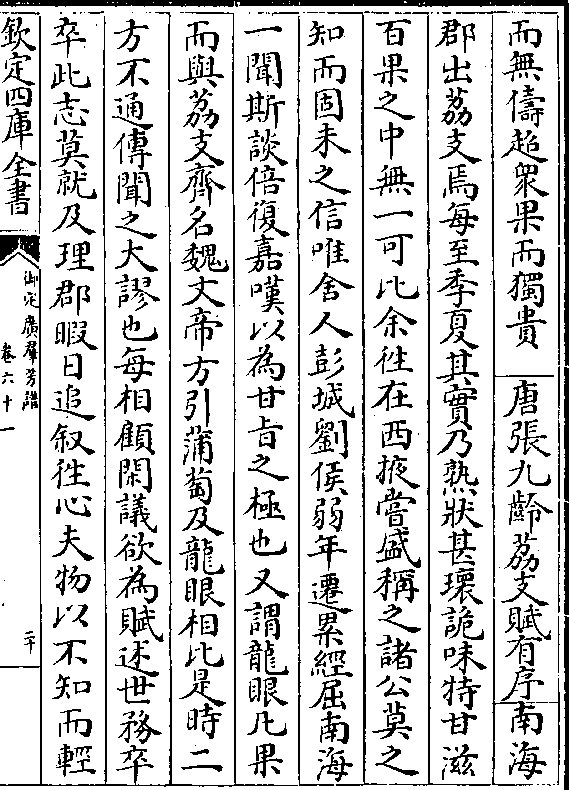 而無儔超衆果而獨貴　唐張九齡荔支賦有序南海
郡出荔支焉每至季夏其實乃熟狀甚瓌詭味特甘滋
百果之中無一可比余往在西掖嘗盛稱之諸公莫之
知而固未之信唯舍人彭城劉侯弱年遷累經届南海
一聞斯談倍復嘉嘆以為甘旨之極也又謂龍眼凡果
而與荔支齊名魏文帝方引蒲萄及龍眼相比是時二
方不通傳聞之大謬也每相顧閑議欲為賦述世務卒
卒此志莫就及理郡暇日追叙往心夫物以不知而輕
欽定四庫全書
御定廣羣芳譜
卷六十一
二十